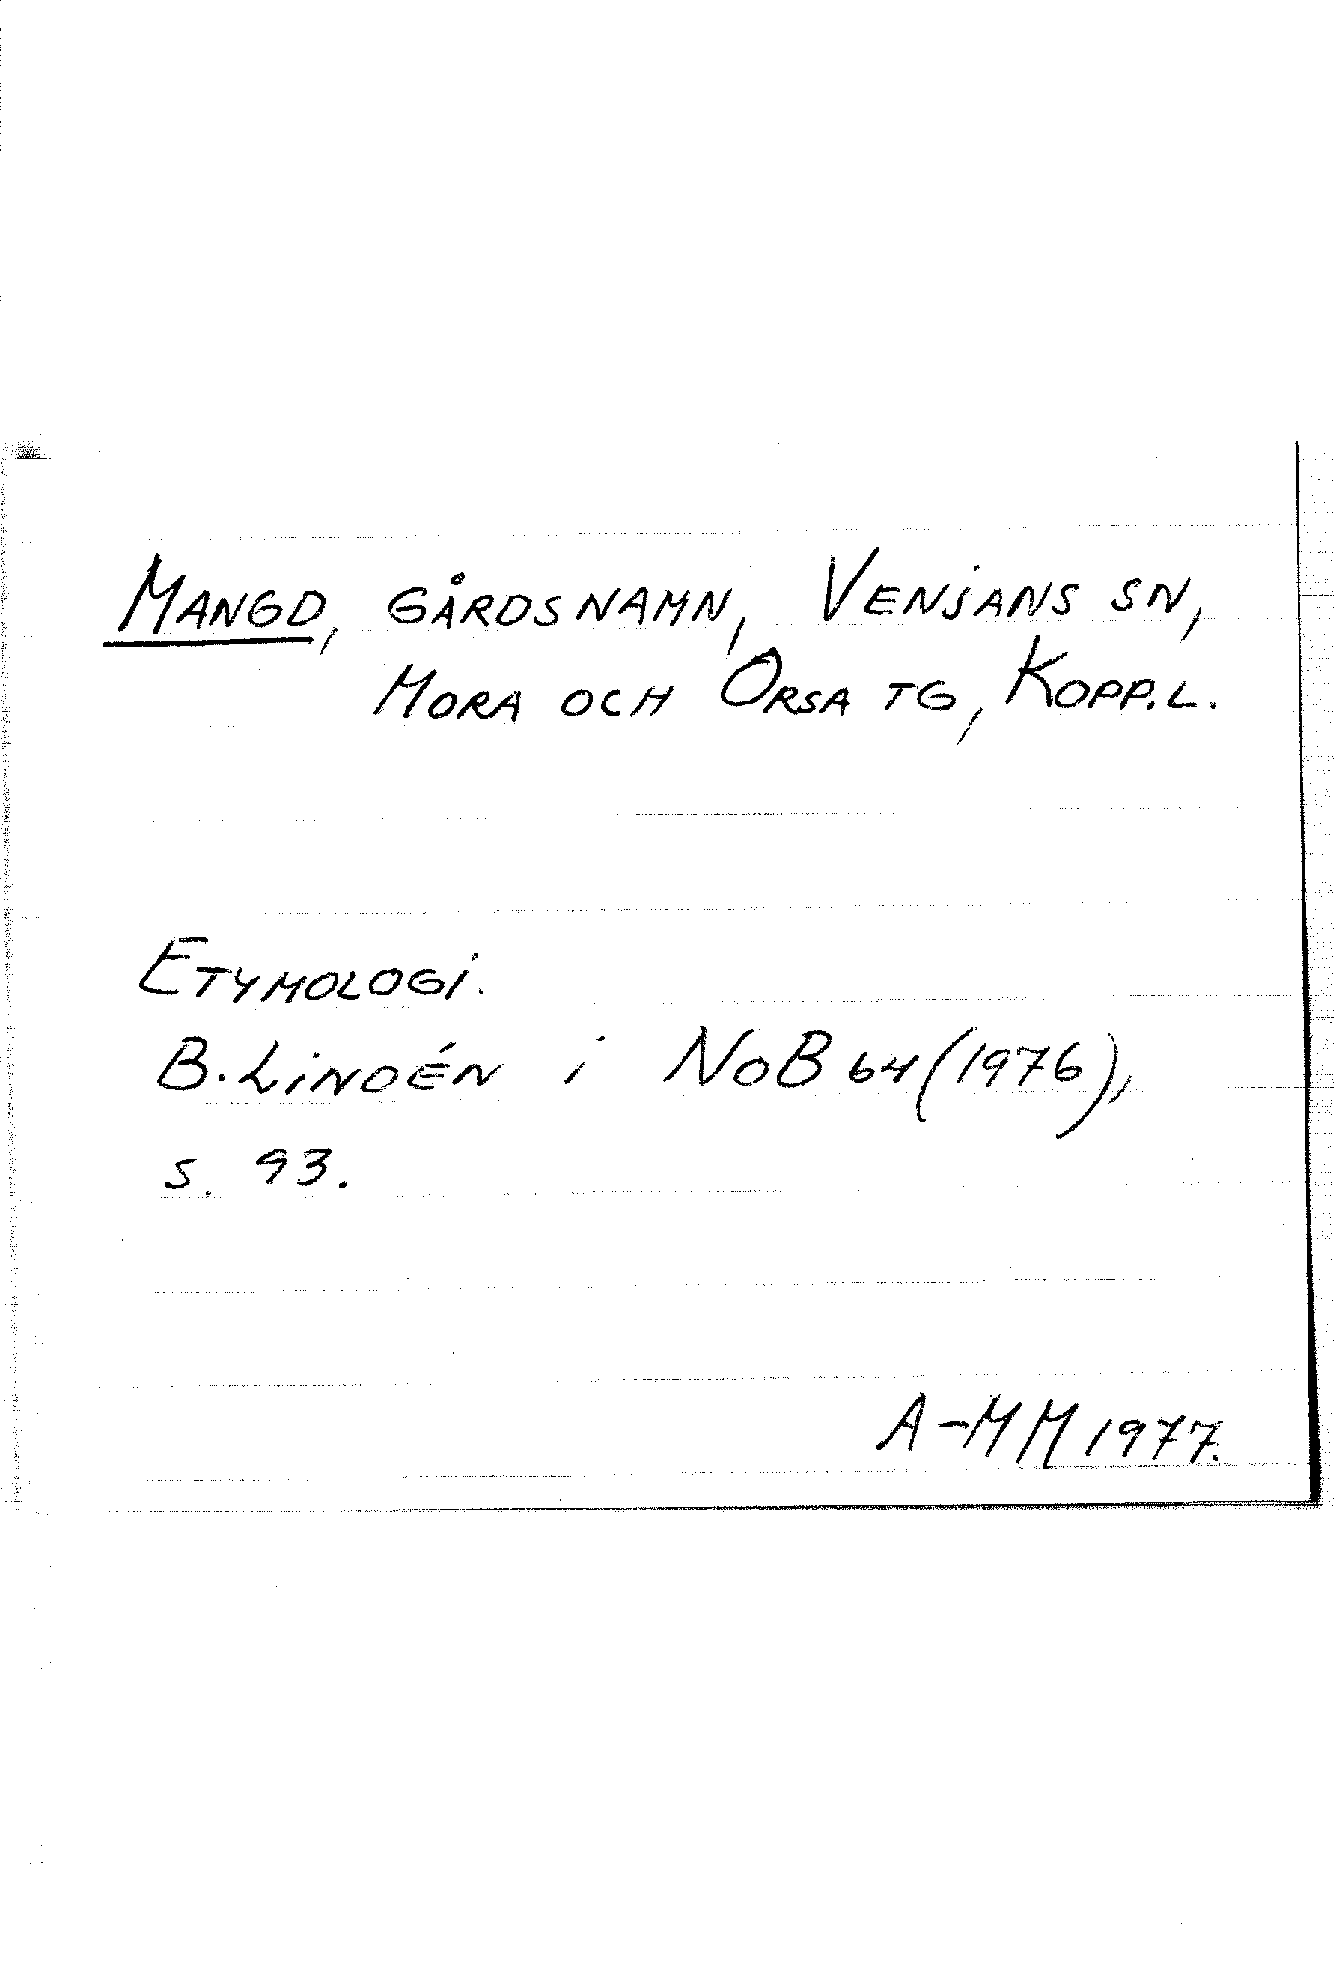 MANGD, GÅRDSNAMN, VENJANS SN,
MORA OCH ORSA TG, KOPP.L.
ETYMOLOGI.
B. LINDÉN i NoB 64 (1976),
s. 93.
A-MM 1977.